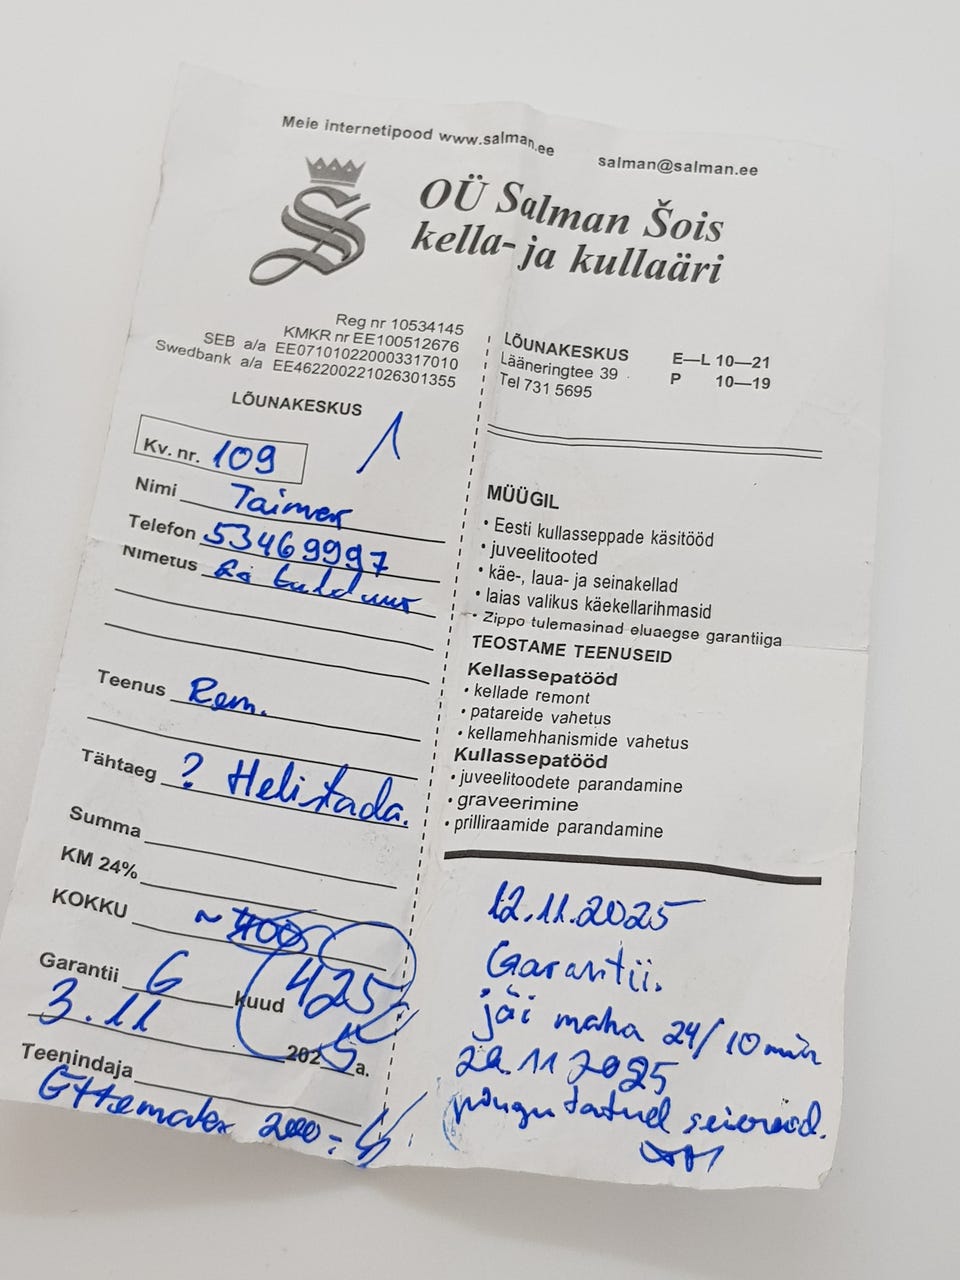 Meie internetipood www.salman.ee
salman@salman.ee
OÜ Salman Šois
kella- ja kullaäri
Reg nr 10534145
KMKR nr EE100512676
SEB a/a EE071010220003317010
Swedbank a/a EE462200221026301355
LÕUNAKESKUS
1
Kv. nr. 109
Nimi Taimar
Telefon 53469997
Nimetus
Teenus Rem.
Tähtaeg ? Helistada.
Summa
KM 24%
KOKKU ~ 400
425
Garantii 6 kuud
3.11 2025 a.
Teenindaja
Ettemaks 200=
LÕUNAKESKUS
Lääneringtee 39
Tel 731 5695
E—L 10—21
P 10—19
MÜÜGIL
• Eesti kullasseppade käsitööd
• juveelitooted
• käe-, laua- ja seinakellad
• laias valikus käekellarihmasid
• Zippo tulemasinad eluaegse garantiiga
TEOSTAME TEENUSEID
Kellassepatööd
• kellade remont
• patareide vahetus
• kellamehhanismide vahetus
Kullassepatööd
• juveelitoodete parandamine
• graveerimine
• prilliraamide parandamine
12.11.2025
Garantii.
jäi maha 24/10 min
20.11 2025
pingutatud seierid.